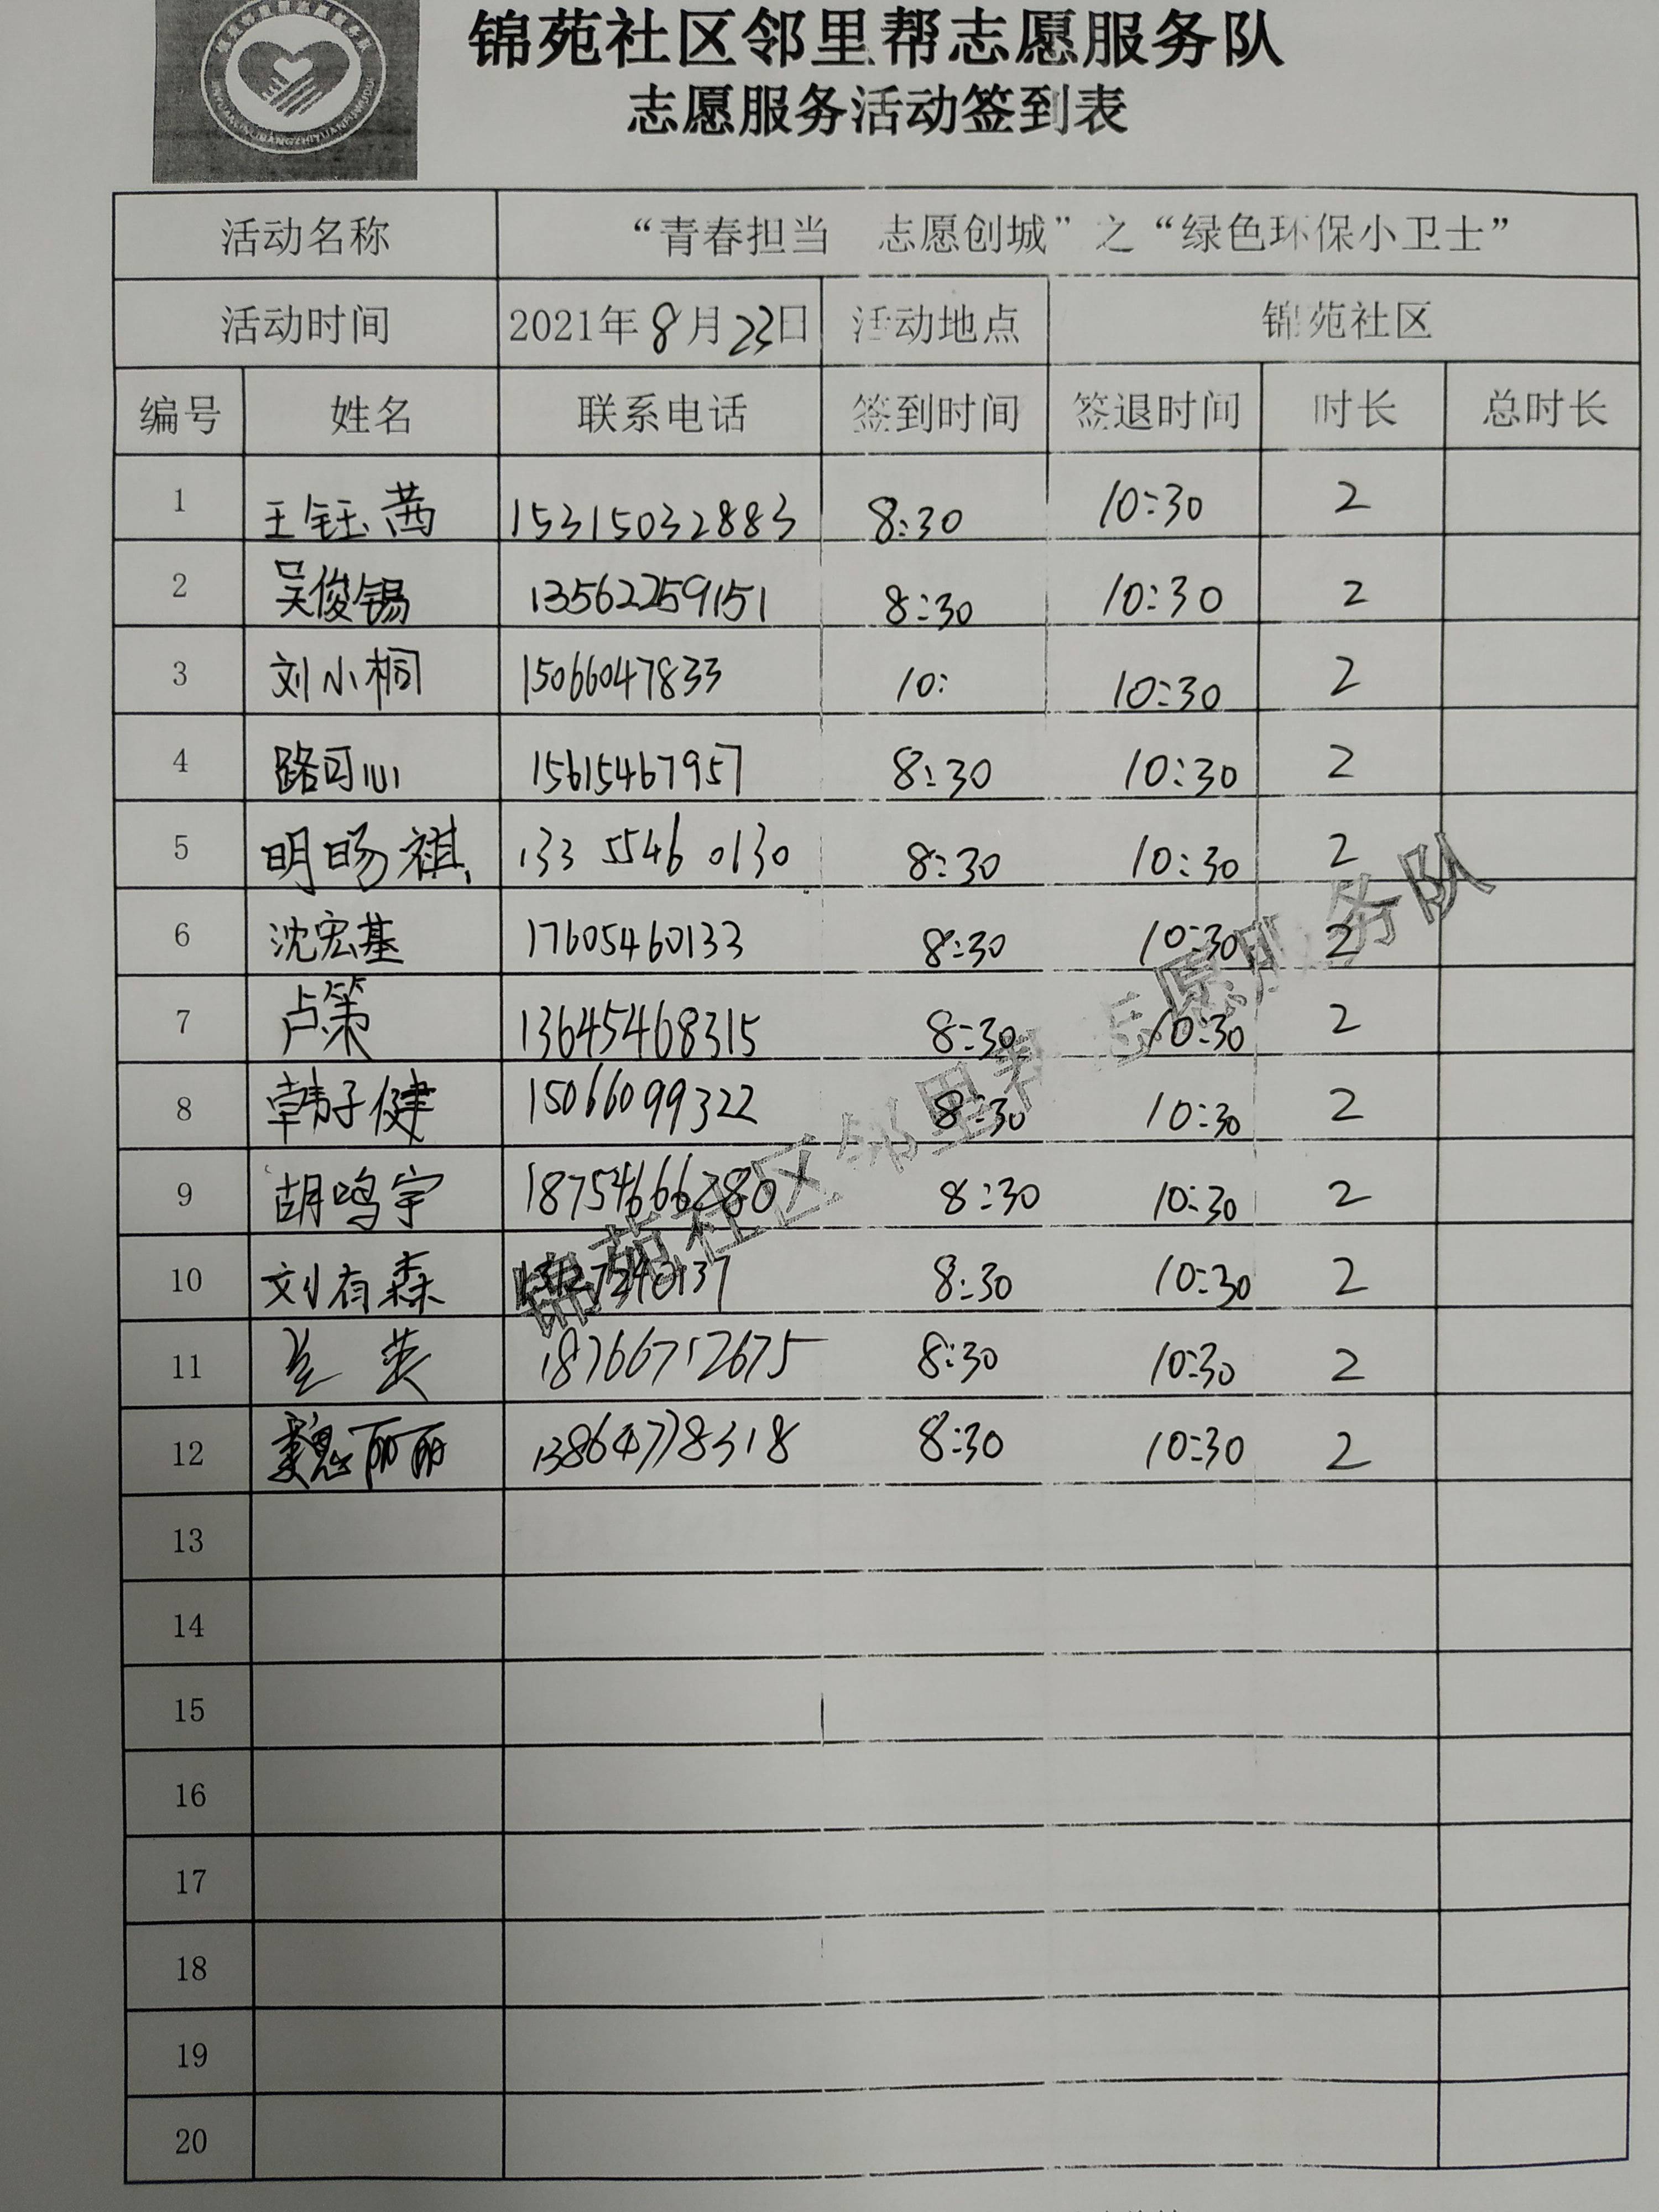 锦苑社区邻里帮志愿服务队
志愿服务活动签到表
活动名称 “青春担当 志愿创城”之“绿色环保小卫士”
活动时间 2021年8月23日 活动地点 锦苑社区
编号 姓名 联系电话 签到时间 签退时间 时长 总时长
1 王钰茜 15315032883 8:30 10:30 2
2 吴俊锡 13562259151 8:30 10:30 2
3 刘小桐 15066047833 10: 10:30 2
4 路可心 15615467957 8:30 10:30 2
5 明旸祺 133 5546 0130 8:30 10:30 2
6 沈宏基 17605460133 8:30 10:30 2
7 卢策 13645468315 8:30 10:30 2
8 韩子健 15066099322 8:30 10:30 2
9 胡鸣宇 18754666280 8:30 10:30 2
10 刘有森 8:30 10:30 2
11 兰英 18766752675 8:30 10:30 2
12 魏丽丽 13864778318 8:30 10:30 2
13
14
15
16
17
18
19
20
锦苑社区邻里帮志愿服务队